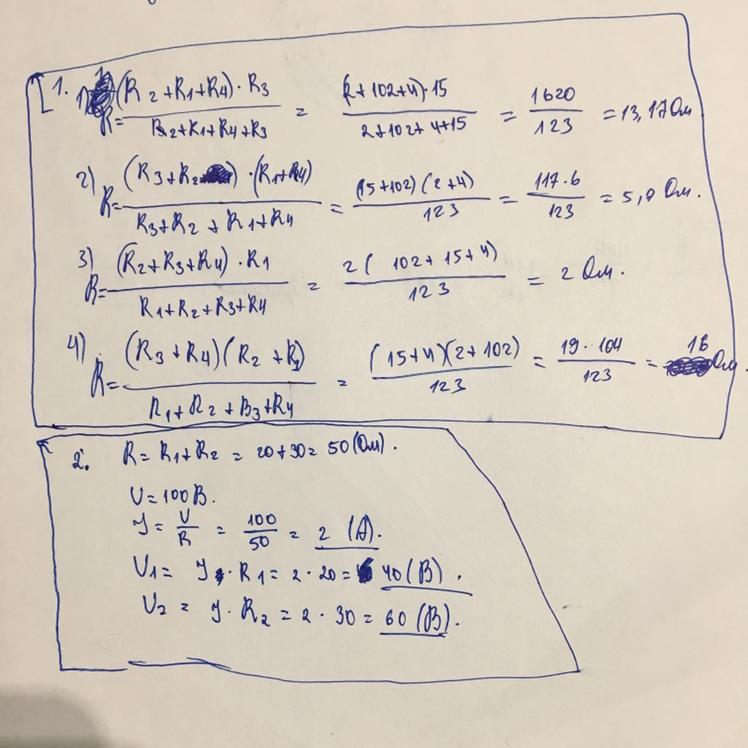 1. 1) R = (R2+R1+R4)·R3 / R2+R1+R4+R3 = (2+102+4)·15 / 2+102+4+15 = 1620 / 123 = 13,17 Ом
2) R = (R3+R2)·(R1+R4) / R3+R2+R1+R4 = (15+102)(2+4) / 123 = 117·6 / 123 = 5,7 Ом.
3) R = (R2+R3+R4)·R1 / R1+R2+R3+R4 = 2(102+15+4) / 123 = 2 Ом.
4) R = (R3+R4)(R2+R1) / R1+R2+R3+R4 = (15+4)(2+102) / 123 = 19·104 / 123 = 16 Ом.
2. R = R1+R2 = 20+30 = 50 (Ом).
U = 100 В.
I = U / R = 100 / 50 = 2 (А).
U1 = I·R1 = 2·20 = 40 (В).
U2 = I·R2 = 2·30 = 60 (В).